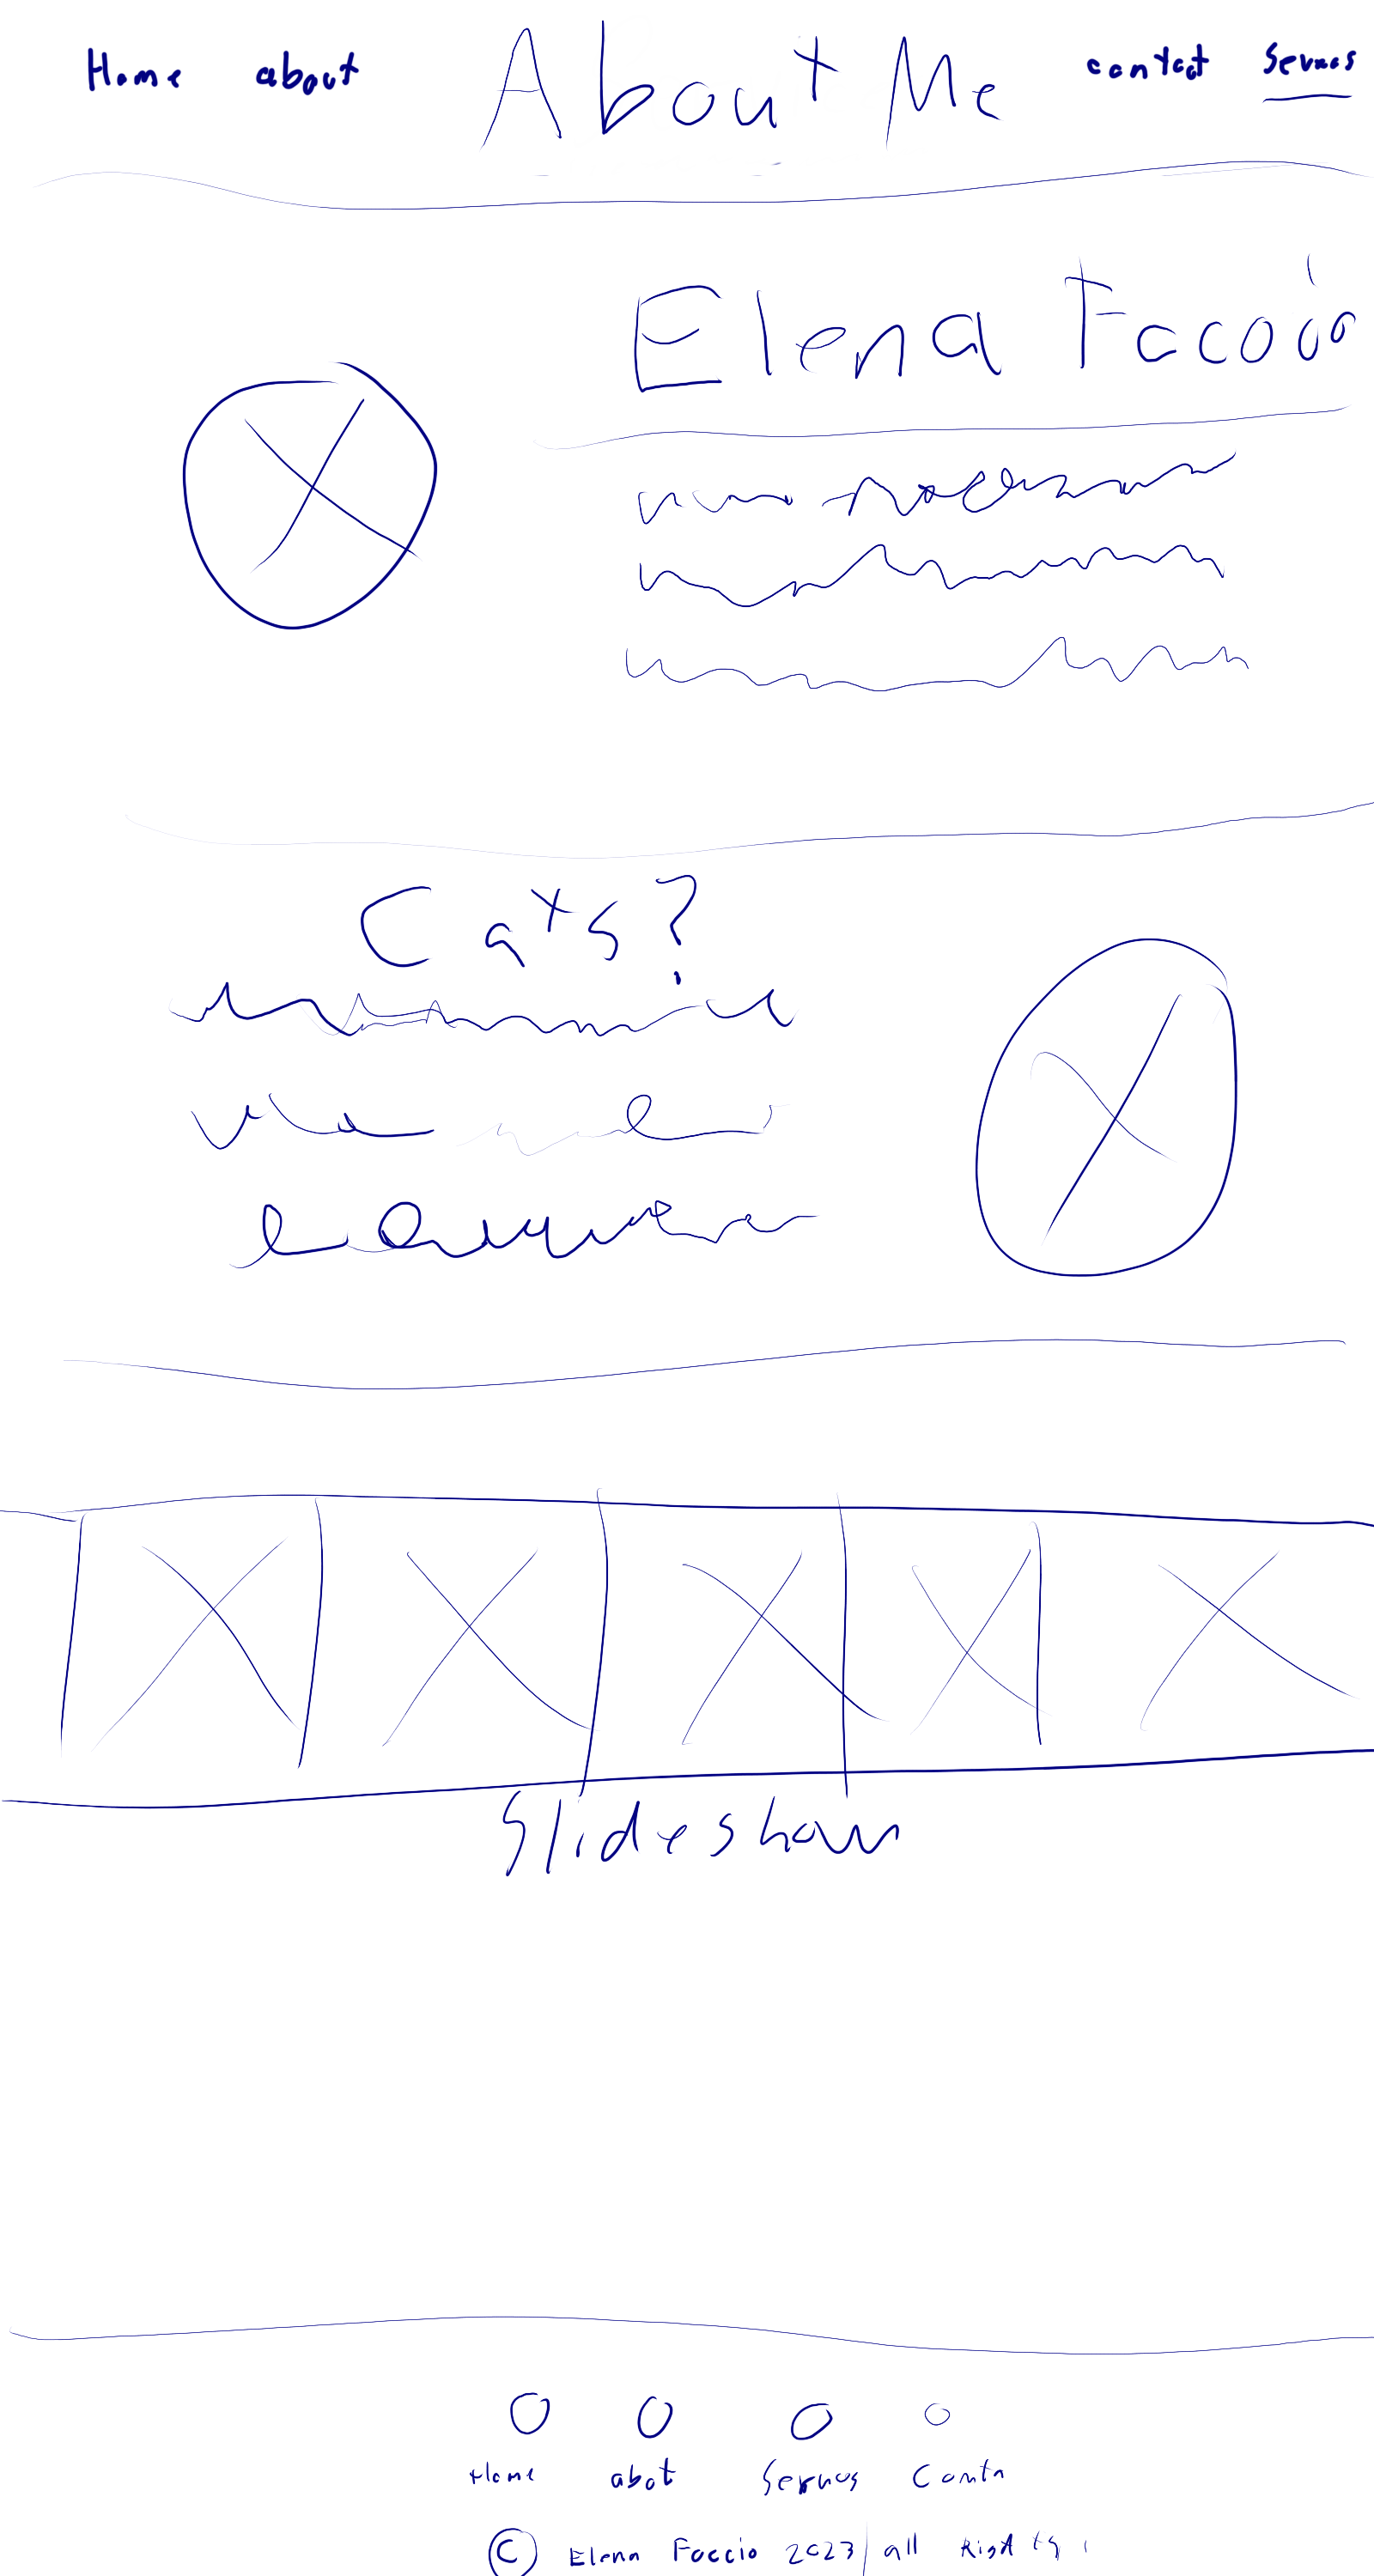 Home about About Me contact Servces
Elena Faccio
Cats?
Slideshow
Home abot Servces Conta
© Elena Faccio 2023 | all Rights